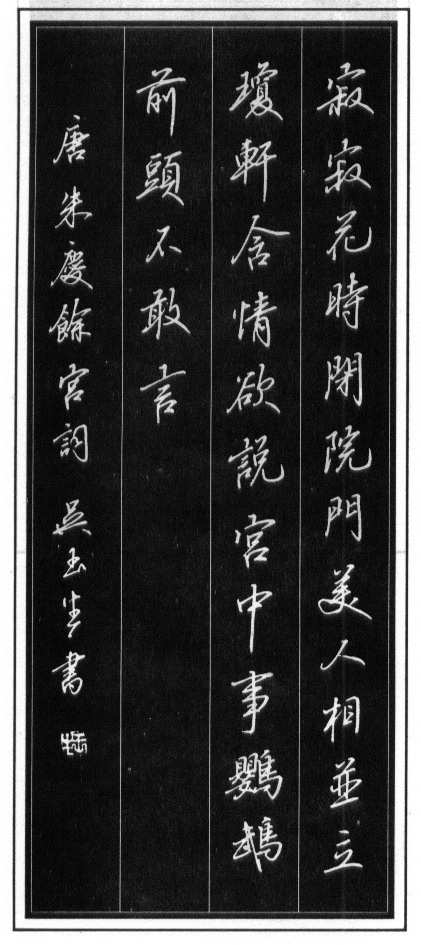 寂寂花時閉院門美人相並立
瓊軒含情欲説宮中事鸚鵡
前頭不敢言
唐朱慶餘宮詞 吳玉生書